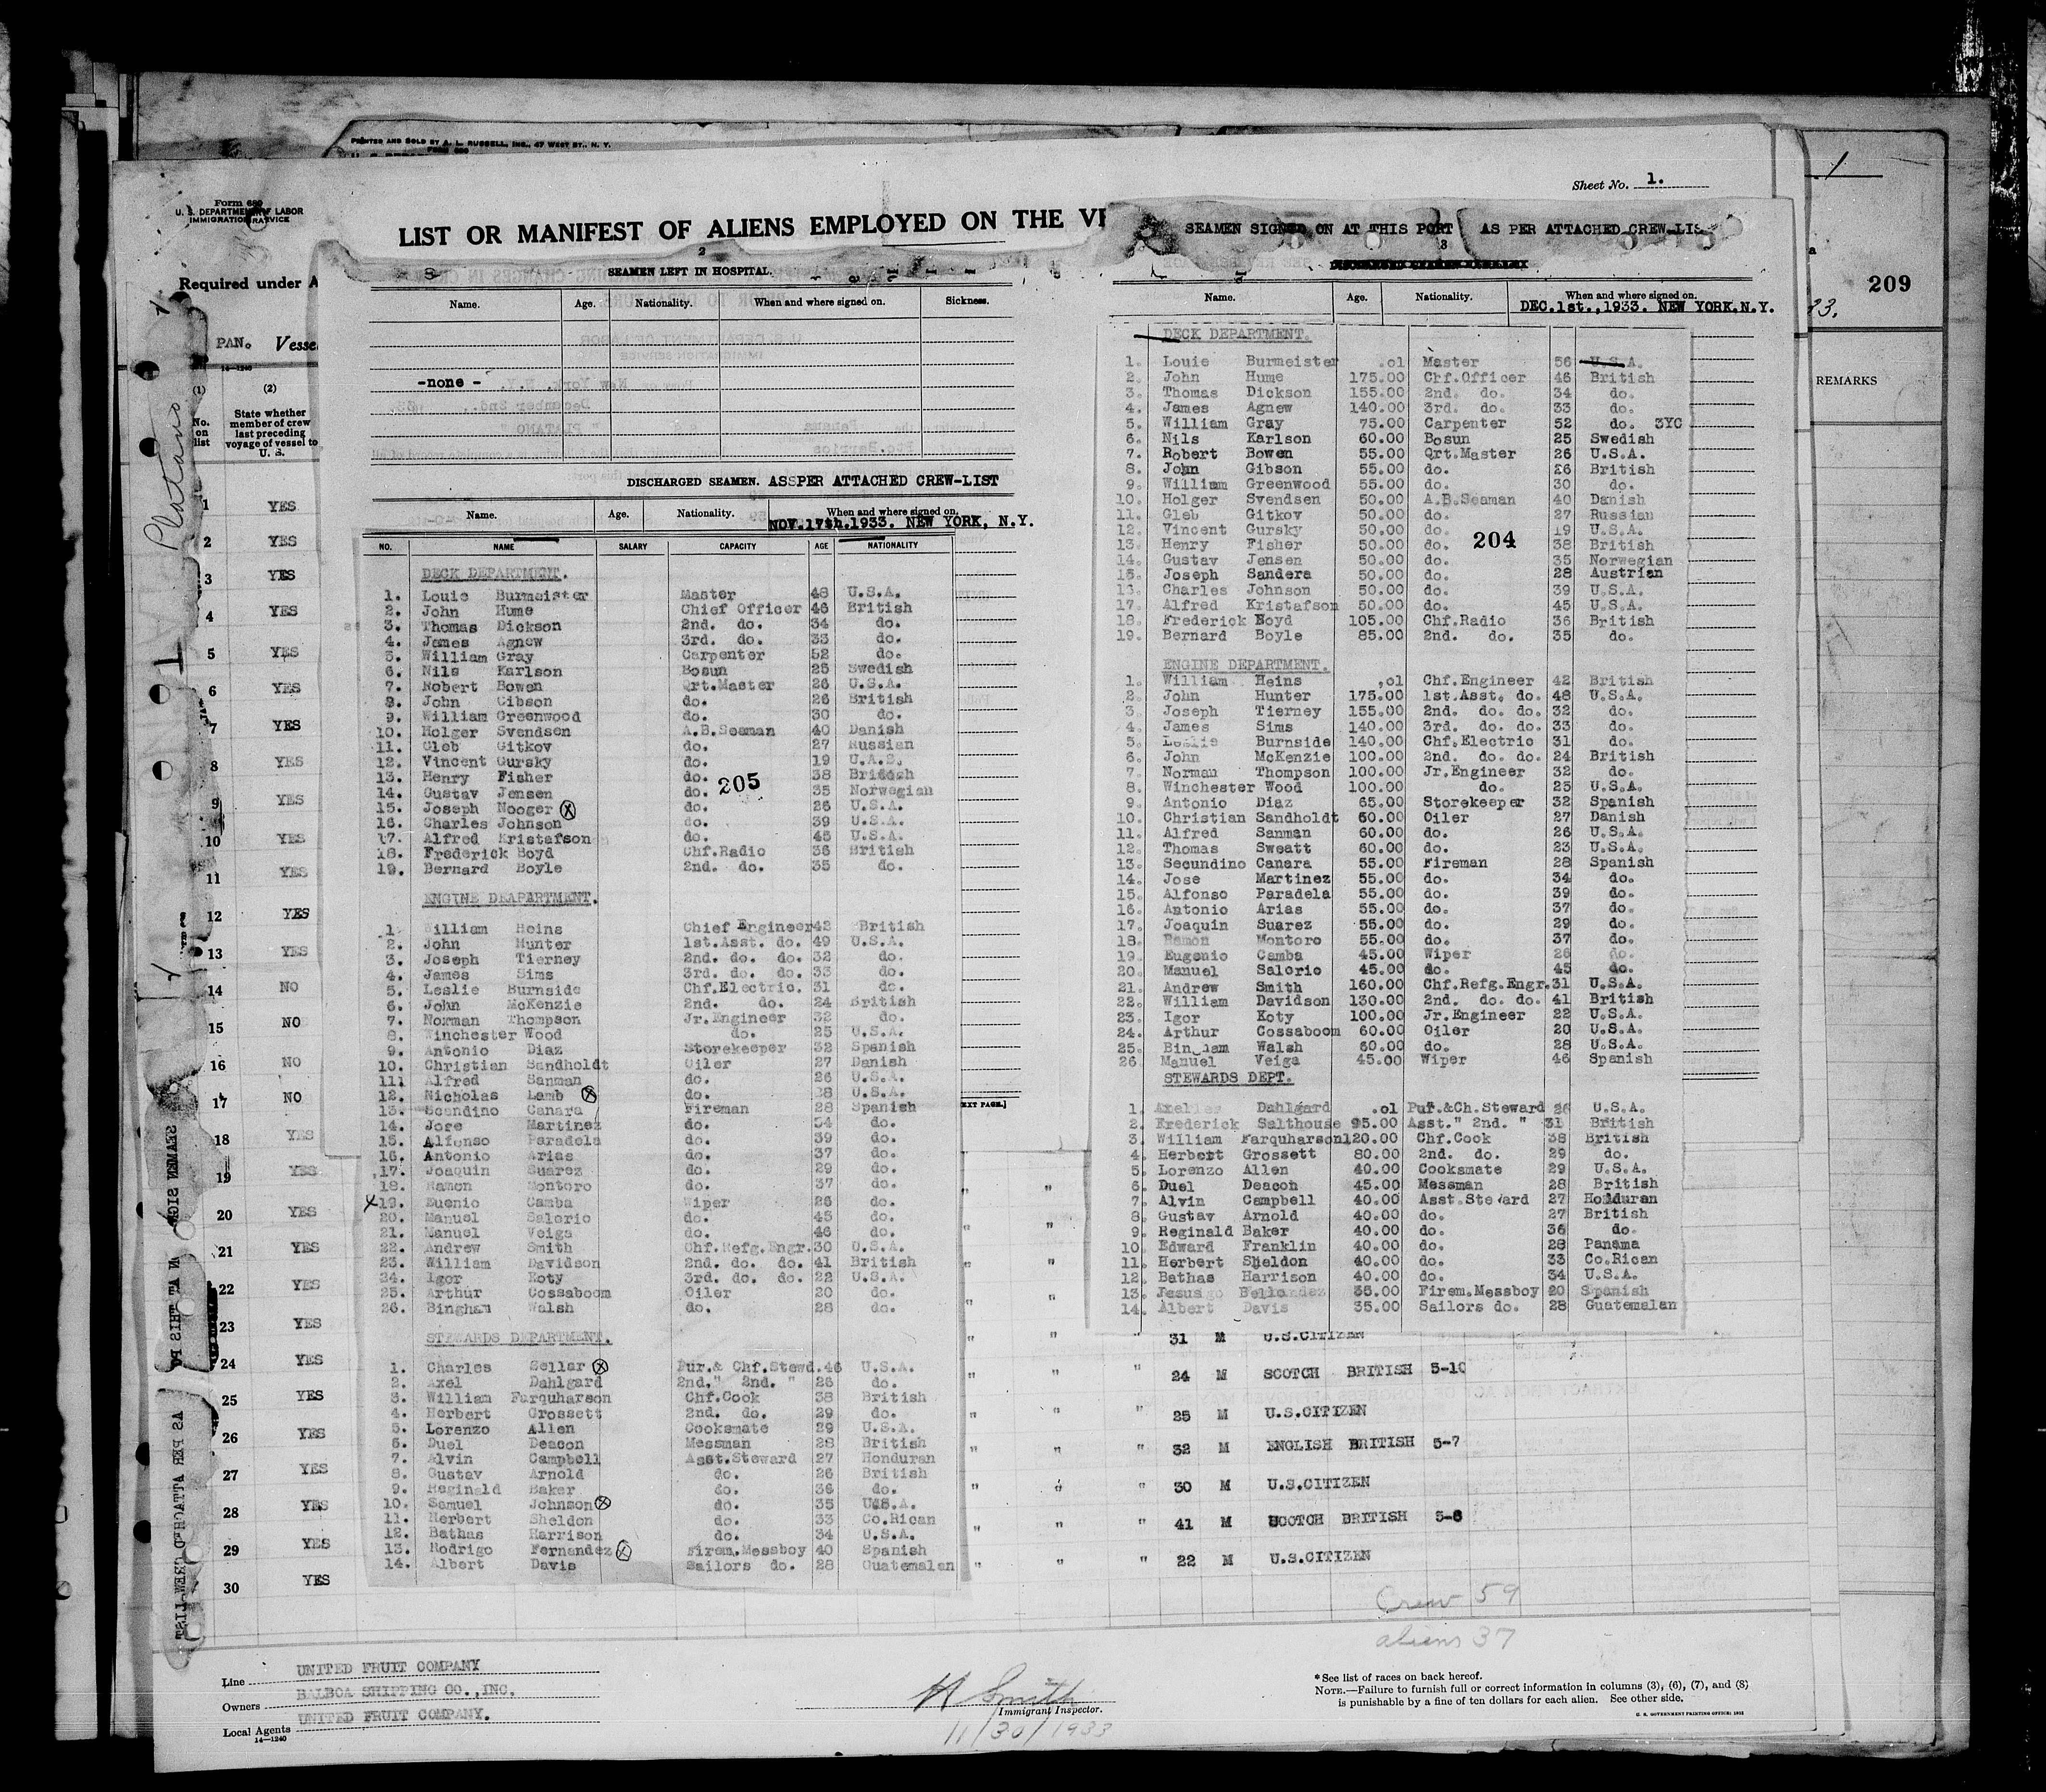 PRINTED AND SOLD BY A. L. RUSSELL, INC., 47 WEST ST., N. Y.
Form 680
U. S. DEPARTMENT OF LABOR
IMMIGRATION SERVICE
Sheet No. 1.
1
LIST OR MANIFEST OF ALIENS EMPLOYED ON THE VE
Required under A
209
PAN. Vesse
14-1240
Platano
(1) (2)
No. on list
State whether member of crew last preceding voyage of vessel to U. S.
REMARKS
1 YES
2 YES
3 YES
4 YES
5 YES
6 YES
7 YES
8 YES
9 YES
10 YES
11 YES
12 YES
13 YES
14 NO
15 NO
16 NO
17 NO
18 YES
19 YES
20 YES
21 YES
22 YES
23 YES
24 YES
25 YES
26 YES
27 YES
28 YES
29 YES
30 YES
2
SEAMEN LEFT IN HOSPITAL.
Name. Age. Nationality. When and where signed on. Sickness.
-none-
DISCHARGED SEAMEN. ASSPER ATTACHED CREW-LIST
Name. Age. Nationality. When and where signed on.
NOV.17th.1933. NEW YORK, N.Y.
NO. NAME SALARY CAPACITY AGE NATIONALITY
DECK DEPARTMENT.
1. Louie Burmeister Master 48 U.S.A.
2. John Hume Chief Officer 46 British
3. Thomas Dickson 2nd. do. 34 do.
4. James Agnew 3rd. do. 33 do.
5. William Gray Carpenter 52 do.
6. Nils Karlson Bosun 25 Swedish
7. Robert Bowen Qrt.Master 26 U.S.A.
8. John Gibson do. 26 British
9. William Greenwood do. 30 do.
10. Holger Svendsen A.B.Seaman 40 Danish
11. Gleb Gitkov do. 27 Russian
12. Vincent Gursky do. 19 U.A.S.
13. Henry Fisher do. 38 British
205
14. Gustav Jensen do. 35 Norwegian
15. Joseph Nooger do. 26 U.S.A.
16. Charles Johnson do. 39 U.S.A.
17. Alfred Kristafson do. 45 U.S.A.
18. Frederick Boyd Chf.Radio 36 British
19. Bernard Boyle 2nd. do. 35 do.
ENGINE DEAPARTMENT.
1 William Heins Chief Engineer 42 British
2. John Hunter 1st.Asst. do. 49 U.S.A.
3. Joseph Tierney 2nd. do. do. 32 do.
4. James Sims 3rd. do. do. 33 do.
5. Leslie Burnside Chf.Electric. 31 do.
6. John McKenzie 2nd. do. 24 British
7. Norman Thompson Jr.Engineer 32 do.
8. Winchester Wood do. 25 U.S.A.
9. Antonio Diaz Storekeeper 32 Spanish
10. Christian Sandholdt Oiler 27 Danish
111 Alfred Sanman do. 26 U.S.A.
12. Nicholas Lamb do. 38 U.S.A.
13. Scendino Canara Fireman 28 Spanish
14. Jose Martinez do. 34 do.
15. Alfonso Paradela do. 39 do.
16. Antonio Arias do. 37 do.
17. Joaquin Suarez do. 29 do.
18. Ramon Montoro do. 37 do.
x 19. Euenio Camba Wiper 26 do.
20. Manuel Salorio do. 45 do.
21. Manuel Veiga do. 46 do.
22. Andrew Smith Chf.Refg.Engr. 30 U.S.A.
23. William Davidson 2nd. do. do. 41 British
24. Igor Koty 3rd. do. do. 22 U.S.A.
25. Arthur Cossaboom Oiler 20 do.
26. Bingham Walsh do. 28 do.
STEWARDS DEPARTMENT.
1. Charles Sellar Pur.& Chf.Stewd. 46 U.S.A.
2. Axel Dahlgard 2nd." 2nd. " 26 do.
3. William Farquharson Chf.Cook 38 British
4. Herbert Grossett 2nd. do. 29 do.
5. Lorenzo Allen Cooksmate 29 U.S.A.
6. Duel Deacon Messman 28 British
7. Alvin Campbell Asst.Steward 27 Honduran
8. Gustav Arnold do. 26 British
9. Reginald Baker do. 36 do.
10. Samuel Johnson do. 35 U.S.A.
11. Herbert Sheldon do. 33 Co.Rican
12. Bathas Harrison do. 34 U.S.A.
13. Rodrigo Fernandez Firem.Messboy 40 Spanish
14. Albert Davis Sailors do. 28 Guatemalan
SEAMEN SIGNED ON AT THIS PORT AS PER ATTACHED CREW-LIS
3
Name. Age. Nationality. When and where signed on.
DEC.1st.,1933. NEW YORK.N.Y.
DECK DEPARTMENT.
1. Louie Burmeister .01 Master 56 U.S.A.
2. John Hume 175.00 Chf.Officer 46 British
3. Thomas Dickson 155.00 2nd. do. 34 do.
4. James Agnew 140.00 3rd. do. 33 do.
5. William Gray 75.00 Carpenter 52 do. 3YC
6. Nils Karlson 60.00 Bosun 25 Swedish
7. Robert Bowen 55.00 Qrt.Master 26 U.S.A.
8. John Gibson 55.00 do. 26 British
9. William Greenwood 55.00 do. 30 do.
10. Holger Svendsen 50.00 A.B.Seaman 40 Danish
11. Gleb Gitkov 50.00 do. 27 Russian
12. Vincent Gursky 50.00 do. 19 U.S.A.
13. Henry Fisher 50.00 do. 38 British
204
14. Gustav Jensen 50.00 do. 35 Norwegian
15. Joseph Sandera 50.00 do. 28 Austrian
16. Charles Johnson 50.00 do. 39 U.S.A.
17. Alfred Kristafson 50.00 do. 45 U.S.A.
18. Frederick Boyd 105.00 Chf.Radio 36 British
19. Bernard Boyle 85.00 2nd. do. 35 do.
ENGINE DEPARTMENT.
1. William Heins ,01 Chf.Engineer 42 British
2. John Hunter 175.00 1st.Asst. do. 48 U.S.A.
3. Joseph Tierney 155.00 2nd. do. do. 32 do.
4. James Sims 140.00 3rd. do. do. 33 do.
5. Leslie Burnside 140.00 Chf.Electric 31 do.
6. John McKenzie 100.00 2nd. do. do. 24 British
7. Norman Thompson 100.00 Jr.Engineer 32 do.
8. Winchester Wood 100.00 do. 25 U.S.A.
9. Antonio Diaz 65.00 Storekeeper 32 Spanish
10. Christian Sandholdt 60.00 Oiler 27 Danish
11. Alfred Sanman 60.00 do. 26 U.S.A.
12. Thomas Sweatt 60.00 do. 23 U.S.A.
13. Secundino Canara 55.00 Fireman 28 Spanish
14. Jose Martinez 55.00 do. 34 do.
15. Alfonso Paradela 55.00 do. 39 do.
16. Antonio Arias 55.00 do. 37 do.
17. Joaquin Suarez 55.00 do. 29 do.
18. Ramon Montoro 55.00 do. 37 do.
19. Eugenio Camba 45.00 Wiper 26 do.
20. Manuel Salorio 45.00 do. 45 do.
21. Andrew Smith 160.00 Chf.Refg.Engr. 31 U.S.A.
22. William Davidson 130.00 2nd. do. do. 41 British
23. Igor Koty 100.00 Jr.Engineer 22 U.S.A.
24. Arthur Cossaboom 60.00 Oiler 20 U.S.A.
25. Bingham Walsh 60.00 do. 28 U.S.A.
26 Manuel Veiga 45.00 Wiper 46 Spanish
STEWARDS DEPT.
1. Axel Dahlgard .01 Pur.&Ch.Steward 26 U.S.A.
2. Frederick Salthouse 95.00 Asst." 2nd. " 31 British
3. William Farquharson 120.00 Chf.Cook 38 British
4. Herbert Grossett 80.00 2nd. do. 29 do.
5. Lorenzo Allen 40.00 Cooksmate 29 U.S.A.
6. Duel Deacon 45.00 Messman 28 British
7. Alvin Campbell 40.00 Asst.Steward 27 Honduran
8. Gustav Arnold 40.00 do. 27 British
9. Reginald Baker 40.00 do. 36 do.
10. Edward Franklin 40.00 do. 28 Panama
11. Herbert Sheldon 40.00 do. 33 Co.Rican
12. Bathas Harrison 40.00 do. 34 U.S.A.
13. Jesus 35.00 Firem.Messboy 20 Spanish
14. Albert Davis 35.00 Sailors do. 28 Guatemalan
EXT PAGE.]
" " " 31 M U.S.CITIZEN
" " " 24 M SCOTCH BRITISH 5-10
" " " 25 M U.S.CITIZEN
" " " 32 M ENGLISH BRITISH 5-7
" " " 30 M U.S.CITIZEN
" " " 41 M SCOTCH BRITISH 5-8
" " " 22 M U.S.CITIZEN
Crew 59
aliens 37
Line UNITED FRUIT COMPANY
Owners BALBOA SHIPPING CO.,INC.
Local Agents UNITED FRUIT COMPANY.
14-1240
H Smith
Immigrant Inspector.
11/30/1933
*See list of races on back hereof.
NOTE.—Failure to furnish full or correct information in columns (3), (6), (7), and (8)
is punishable by a fine of ten dollars for each alien. See other side.
U. S. GOVERNMENT PRINTING OFFICE: 1932